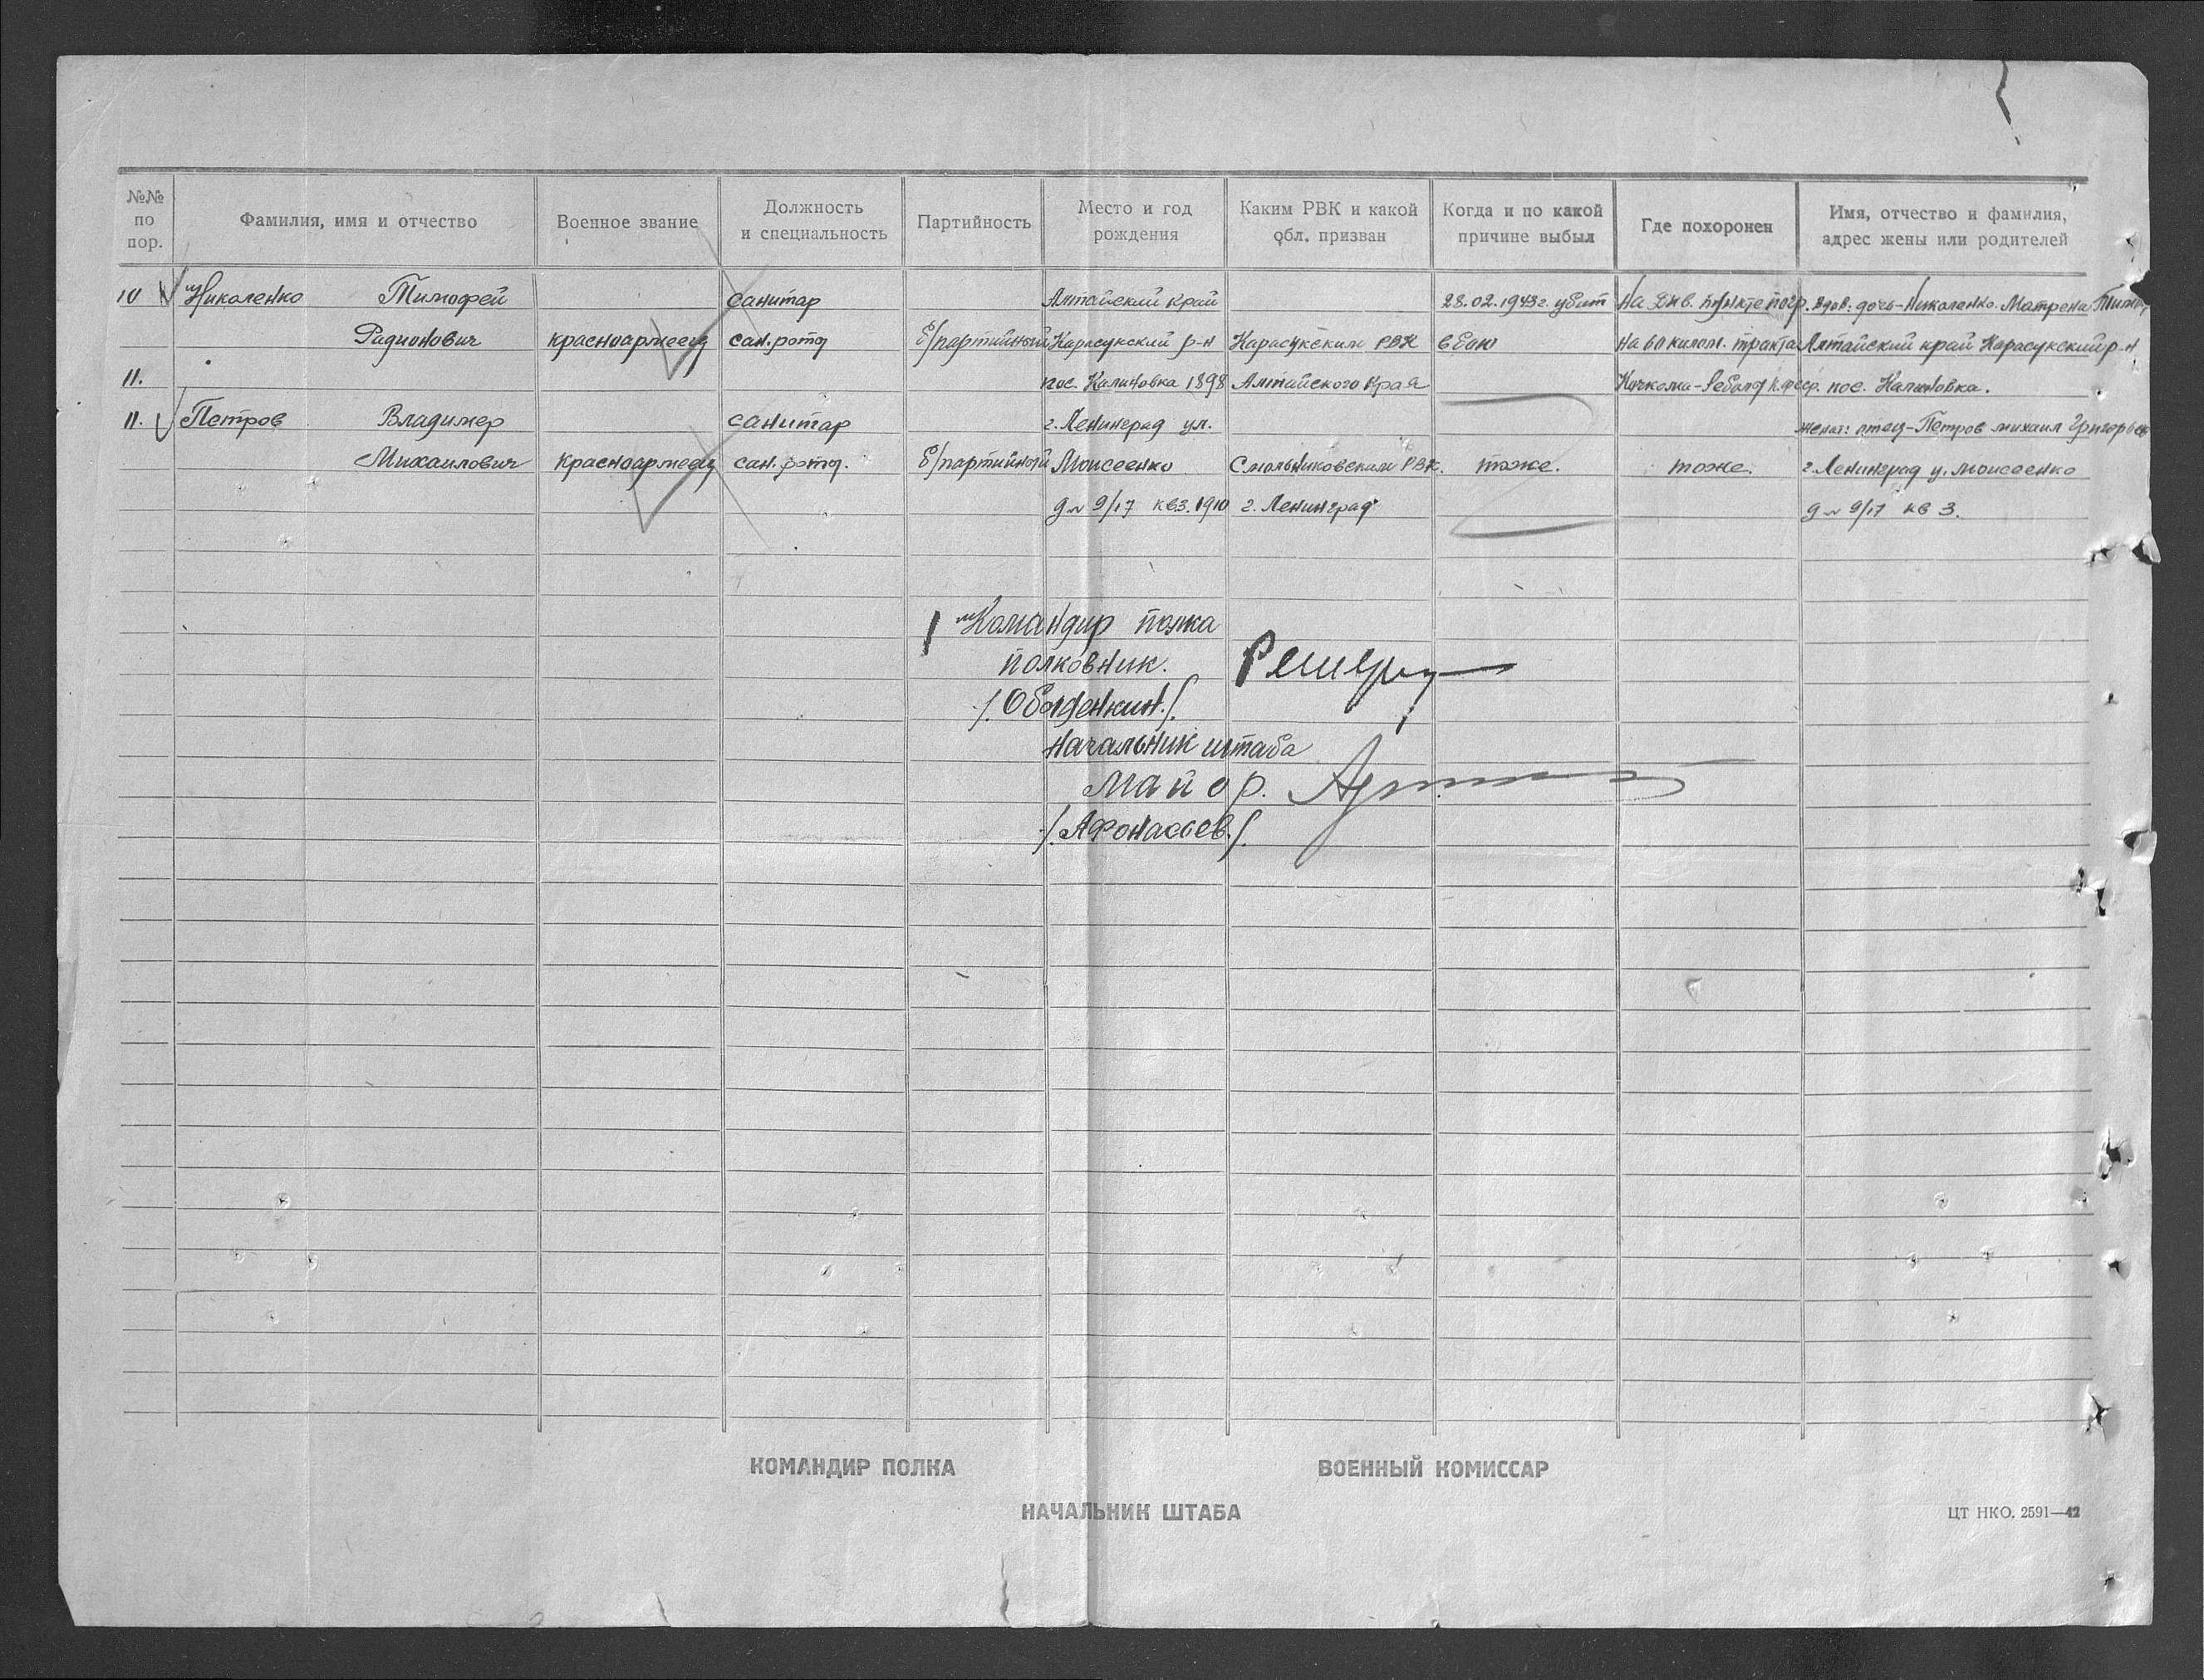 №№ по пор.
Фамилия, имя и отчество
Военное звание
Должность и специальность
Партийность
Место и год рождения
Каким РВК и какой обл. призван
Когда и по какой причине выбыл
Где похоронен
Имя, отчество и фамилия, адрес жены или родителей
10 Николенко Тимофей санитар Алтайский край 28.02.1943г. убит На Див. пункте погр. вдов: дочь-Николенко Матрена
Радионович красноармеец сан.рота б/партийный Карасукский р-н Карасукским РВК в бою на 60 килом. тракта Алтайский край Карасукский р-н
11. пос. Калиновка 1898 Алтайского края Кочкома-Реболы пос. Калиновка.
11. Петров Владимер санитар г. Ленинград ул. женат: отец-Петров михаил Григорьев
Михаилович красноармеец сан.рота. б/партийный Моисеенко Смольниковским РВК. тоже. тоже. г. Ленинград у. Моисеенко
д ~ 9/17 кв3. 1910 г. Ленинград д ~ 9/17 кв 3.
Командир полка
полковник.
/.Оболденкин./
Начальник штаба
Майор.
/.Афонасьев./.
КОМАНДИР ПОЛКА
ВОЕННЫЙ КОМИССАР
НАЧАЛЬНИК ШТАБА
ЦТ НКО. 2591—42